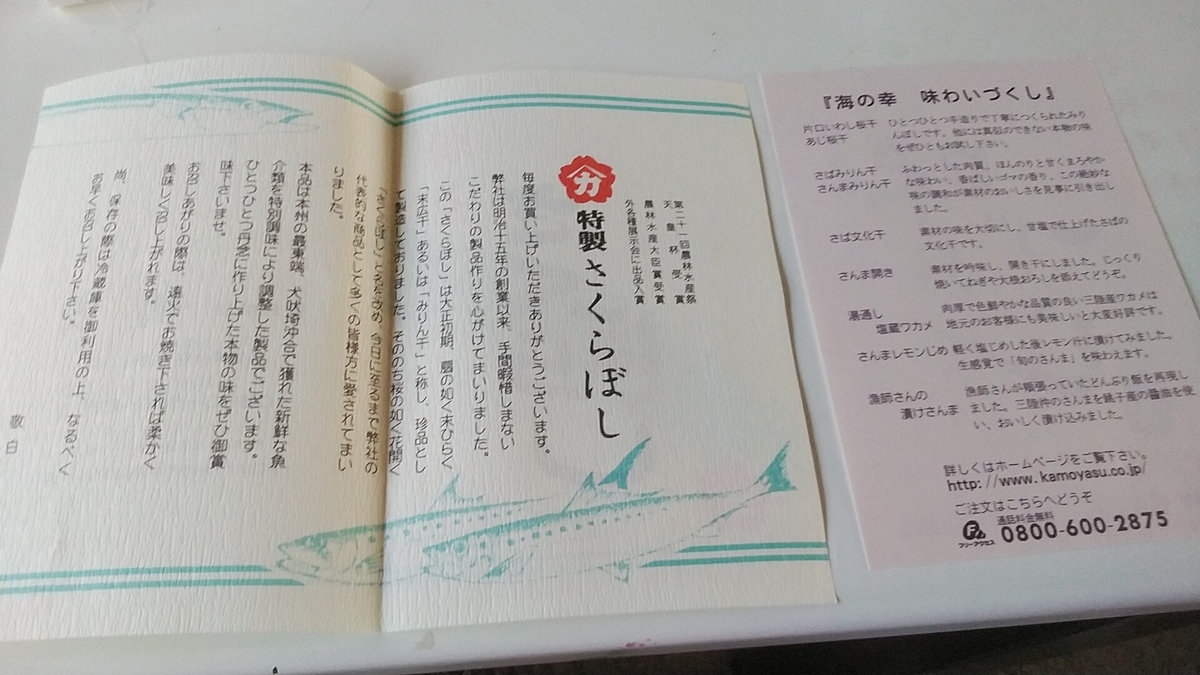 カ
特製さくらぼし
第二十一回農林水産祭
天皇杯受賞
農林水産大臣賞受賞
外各種展示会に出品入賞
毎度お買い上げいただきありがとうございます。
弊社は明治十五年の創業以来、手間暇惜しまない
こだわりの製品作りを心がけてまいりました。
この「さくらぼし」は大正初期、扇の如く末ひらく
「末広干」あるいは「みりん干」と称し、珍品とし
て製造しておりました。そののち桜の如く花開く
「さくらぼし」と名を改め、今日に至るまで弊社の
代表的な商品として多くの皆様方に愛されてまい
りました。
本品は本州の最東端、犬吠埼沖合で獲れた新鮮な魚
介類を特別調味により調整した製品でございます。
ひとつひとつ丹念に作り上げた本物の味をぜひ御賞
味下さいませ。
お召しあがりの際は、遠火でお焼き下されば柔かく
美味しく召し上がれます。
尚、保存の際は冷蔵庫を御利用の上、なるべく
お早くお召し上がり下さい。
敬白
『海の幸　味わいづくし』
片口いわし桜干　ひとつひとつ手造りで丁寧につくられたみり
あじ桜干　んぼしです。他には真似のできない本物の味
をぜひともお試し下さい。
さばみりん干　ふわっとした肉質、ほんのりと甘くまろやか
さんまみりん干　な味わい、香ばしいゴマの香り、この絶妙な
味の調和が素材のおいしさを見事に引き出し
ました。
さば文化干　素材の味を大切にし、甘塩で仕上げたさばの
文化干です。
さんま開き　素材を吟味し、開き干にしました。じっくり
焼いてねぎや大根おろしを添えてどうぞ。
湯通し　肉厚で色鮮やかな品質の良い三陸産ワカメは
塩蔵ワカメ　地元のお客様にも美味しいと大変好評です。
さんまレモンじめ　軽く塩じめした後レモン汁に漬けてみました。
生感覚で「旬のさんま」を味わえます。
漁師さんの　漁師さんが頬張っていたどんぶり飯を再現し
漬けさんま　ました。三陸沖のさんまを銚子産の醤油を使
い、おいしく漬け込みました。
詳しくはホームページをご覧下さい。
http://www.kamoyasu.co.jp/
ご注文はこちらへどうぞ
通話料金無料
フリーアクセス
0800-600-2875